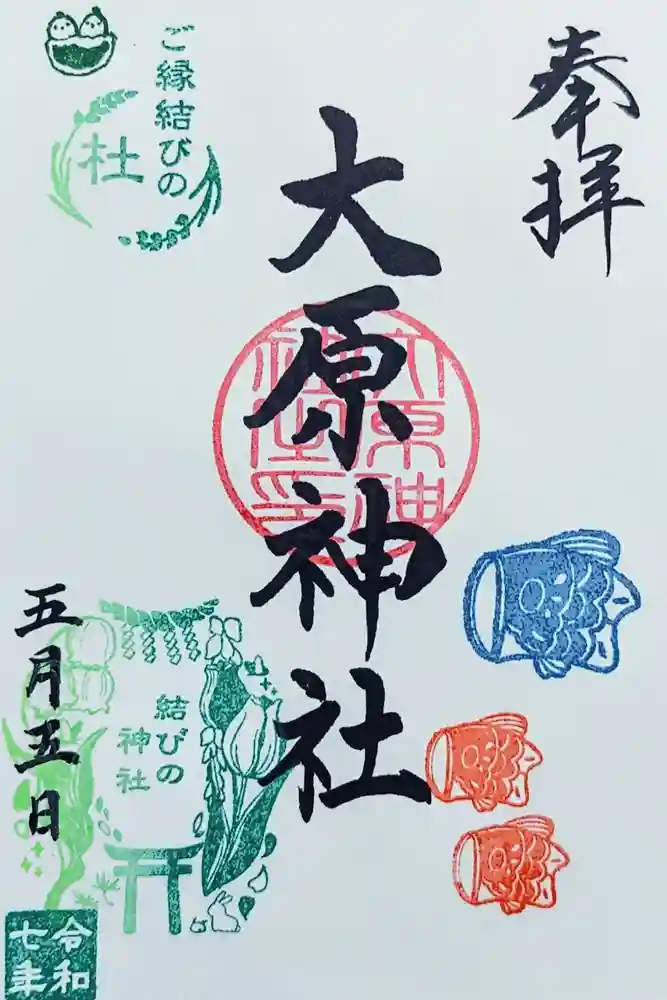 奉拝
大原神社
大原神
社之印
ご縁結びの
杜
結びの
神社
五月五日
令和
七年